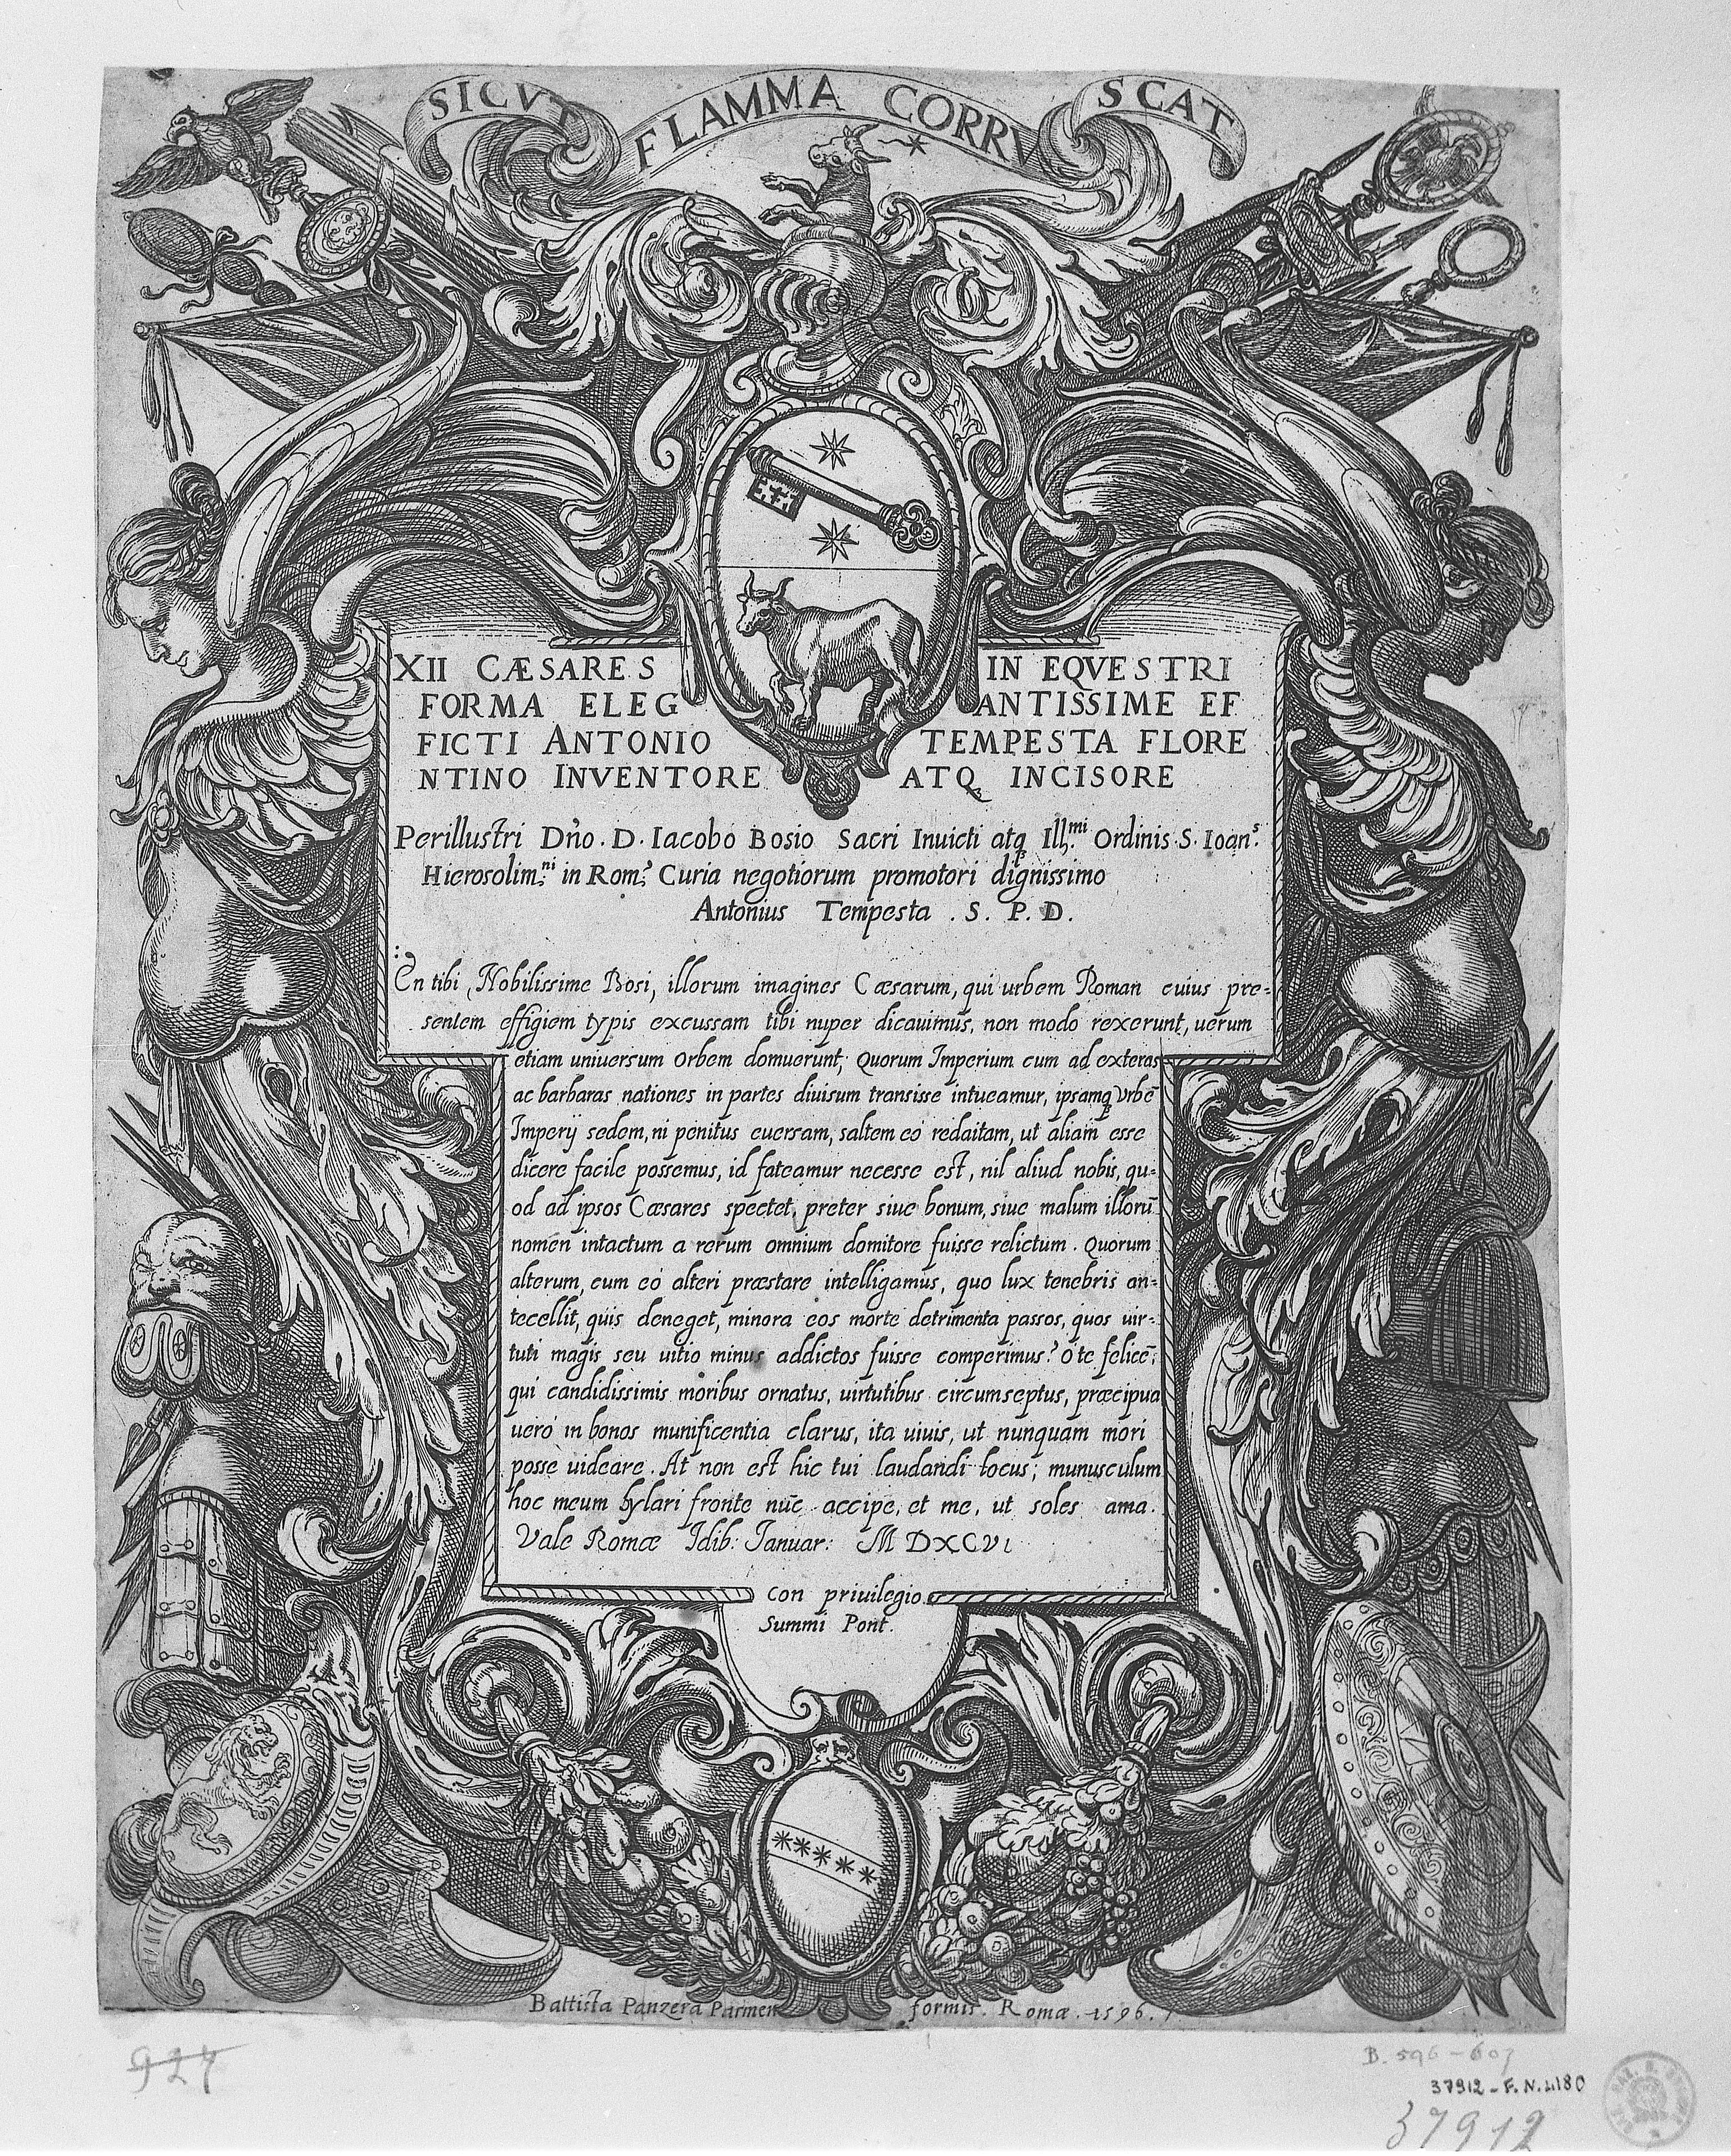 SICVT FLAMMA CORRVSCAT
XII CÆSARES IN EQVESTRI
FORMA ELEG ANTISSIME EF
FICTI ANTONIO TEMPESTA FLORE
NTINO INVENTORE ATQ. INCISORE
Perillustri Dño. D. Iacobo Bosio Sacri Inuicti atq Ill.mi Ordinis S. Ioan.s
Hierosolim.ni in Rom.a Curia negotiorum promotori dignissimo
Antonius Tempesta . S. P. D.
En tibi, Nobilissime Bosi, illorum imagines Cæsarum, qui urbem Roman cuius pre-
sentem effigiem typis excussam tibi nuper dicauimus, non modo rexerunt, uerum
etiam uniuersum Orbem domuerunt; Quorum Imperium cum ad exteras
ac barbaras nationes in partes diuisum transisse intueamur, ipsamq Vrbē
Imperij sedem, ni penitus euersam, saltem eò redactam, ut aliam esse
dicere facile possemus, id fateamur necesse est, nil aliud nobis, qu-
od ad ipsos Cæsares spectet, preter siue bonum, siue malum illorū
nomen intactum a rerum omnium domitore fuisse relictum. Quorum
alterum, cum eò alteri præstare intelligamus, quo lux tenebris an-
tecellit, quis deneget, minora eos morte detrimenta passos, quos uir-
tuti magis seu uitio minus addictos fuisse comperimus? O te felicē,
qui candidissimis moribus ornatus, uirtutibus circumseptus, præcipua
uerò in bonos munificentia clarus, ita uiuis, ut nunquam mori
posse uideare. At non est hic tui laudandi locus; munusculum
hoc meum hylari fronte nūc accipe, et me, ut soles ama.
Vale Romæ Idib: Ianuar: M DXCVI
Con priuilegio
Summi Pont.
Battista Panzera Parmen formis. Romæ. 1596.
927
B. 596-607
37912-F.N.4180
37912